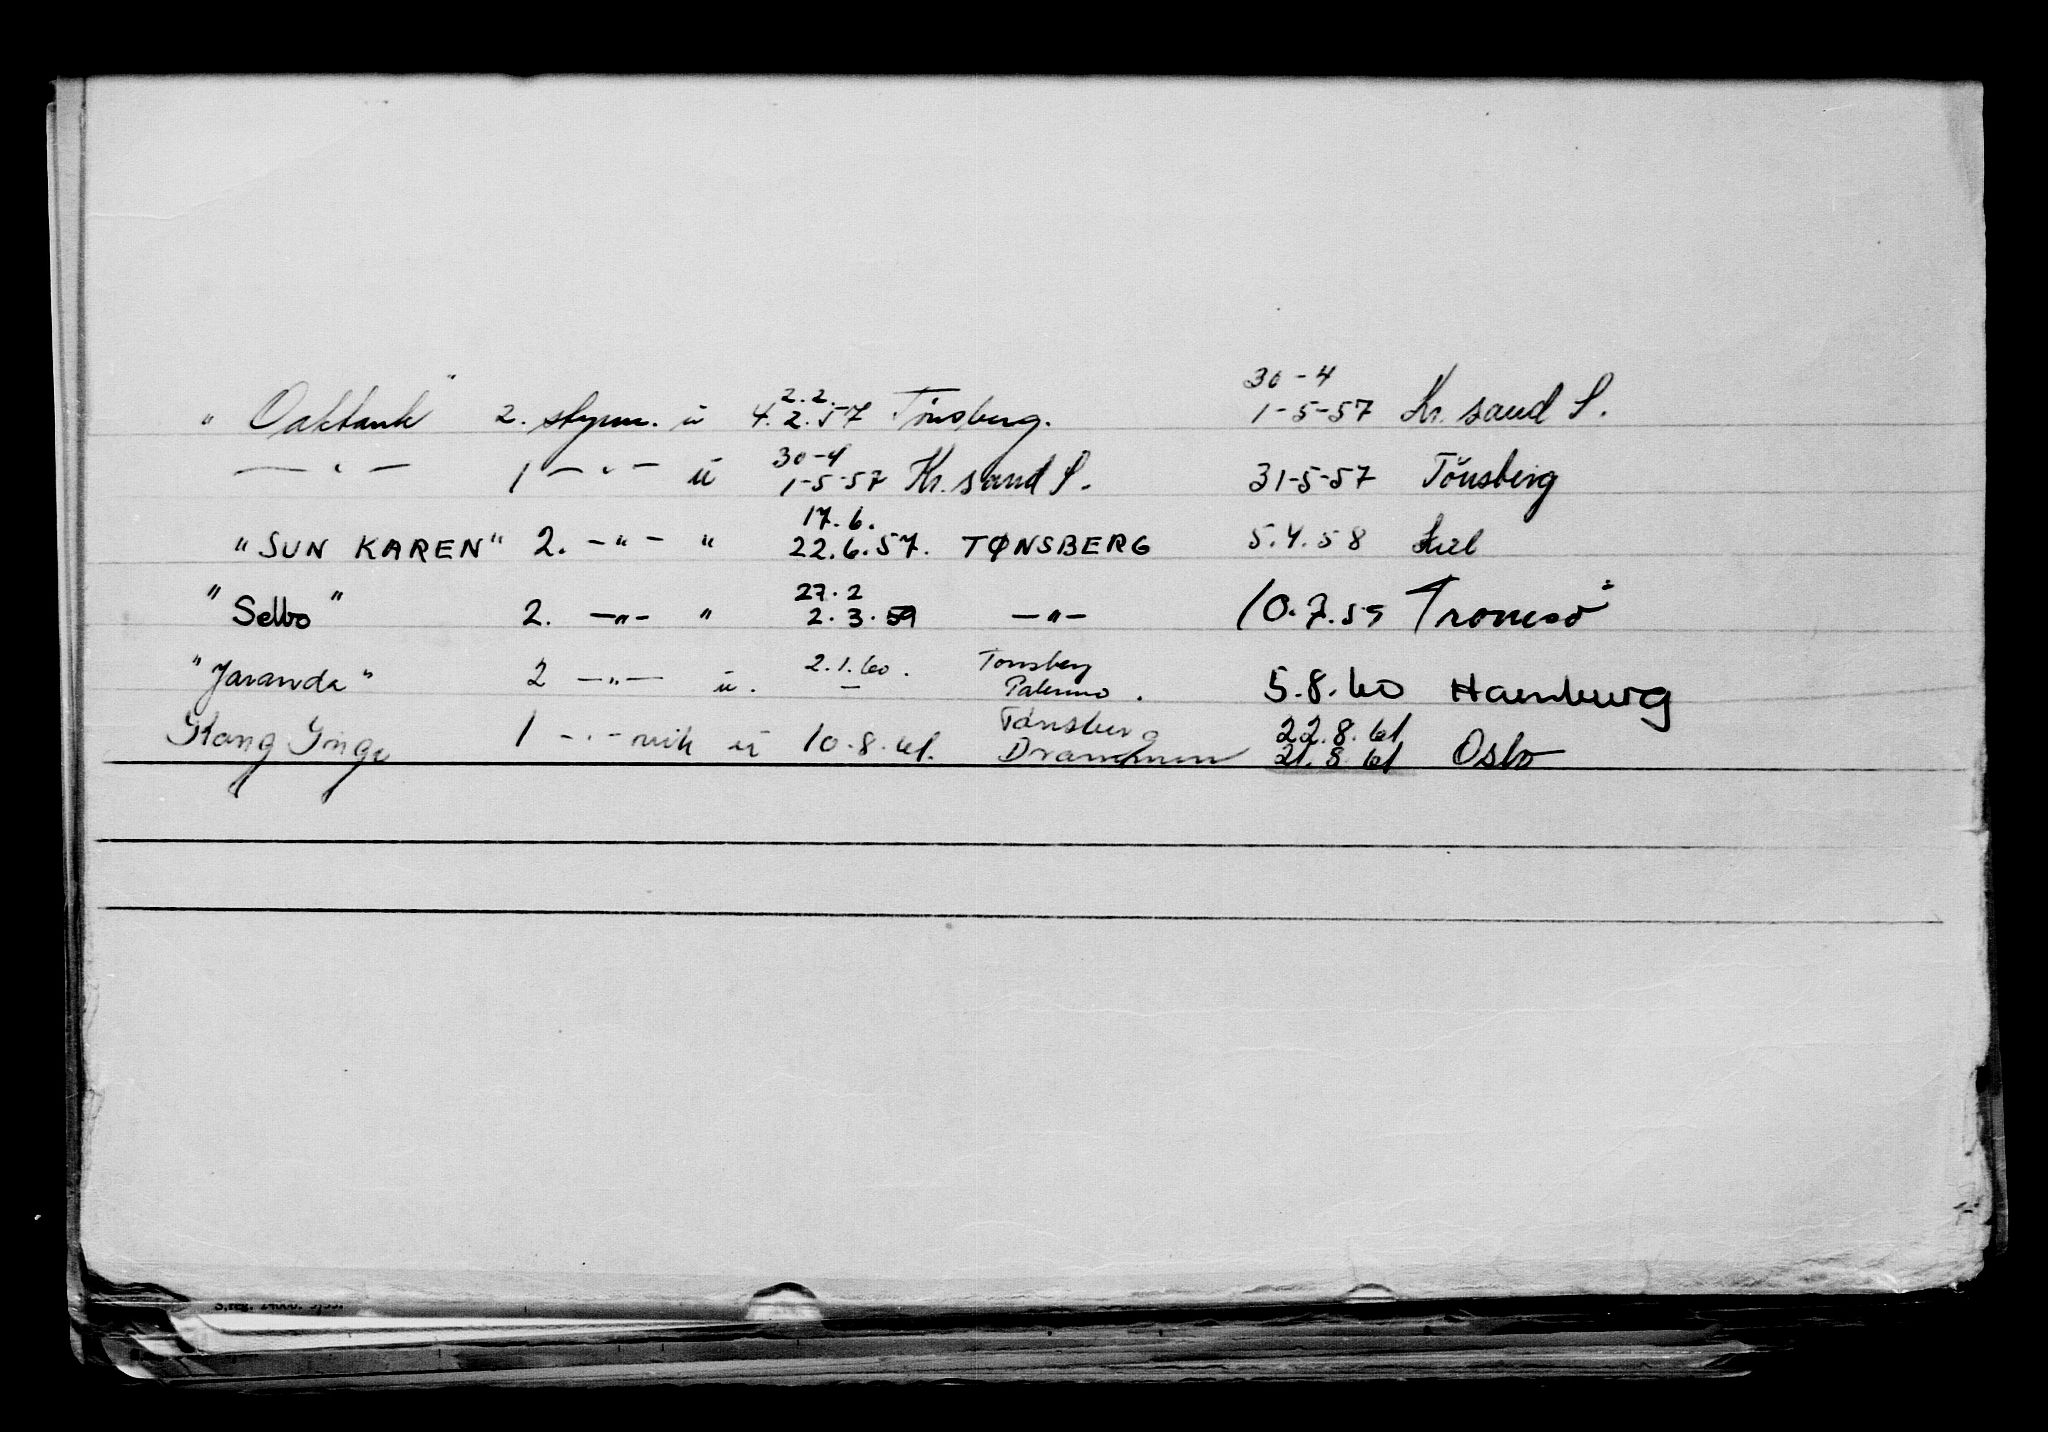 30-4
2.2.
"Oaktank" 2. styrm. u 4.2.57 Tönsberg. 1-5-57 Kr. sand S.
30-4
— " — 1 — " — u 1-5-57 Kr. sand S. 31-5-57 Tönsberg
17.6.
"SUN KAREN" 2. — " — " 22.6.57. TØNSBERG 5.4.58 Kiel
27.2
"Selbo" 2. — " — " 2.3.59 — " — 10.7.59 Tromsö
2.1.60. Tønsberg
"Jaranda" 2 — " — u. — Palermo. 5.8.60 Hamburg
Tönsberg 22.8.61
Kong Inge 1 — " — vik u 10.8.61. Drammen 21.8.61 Oslo